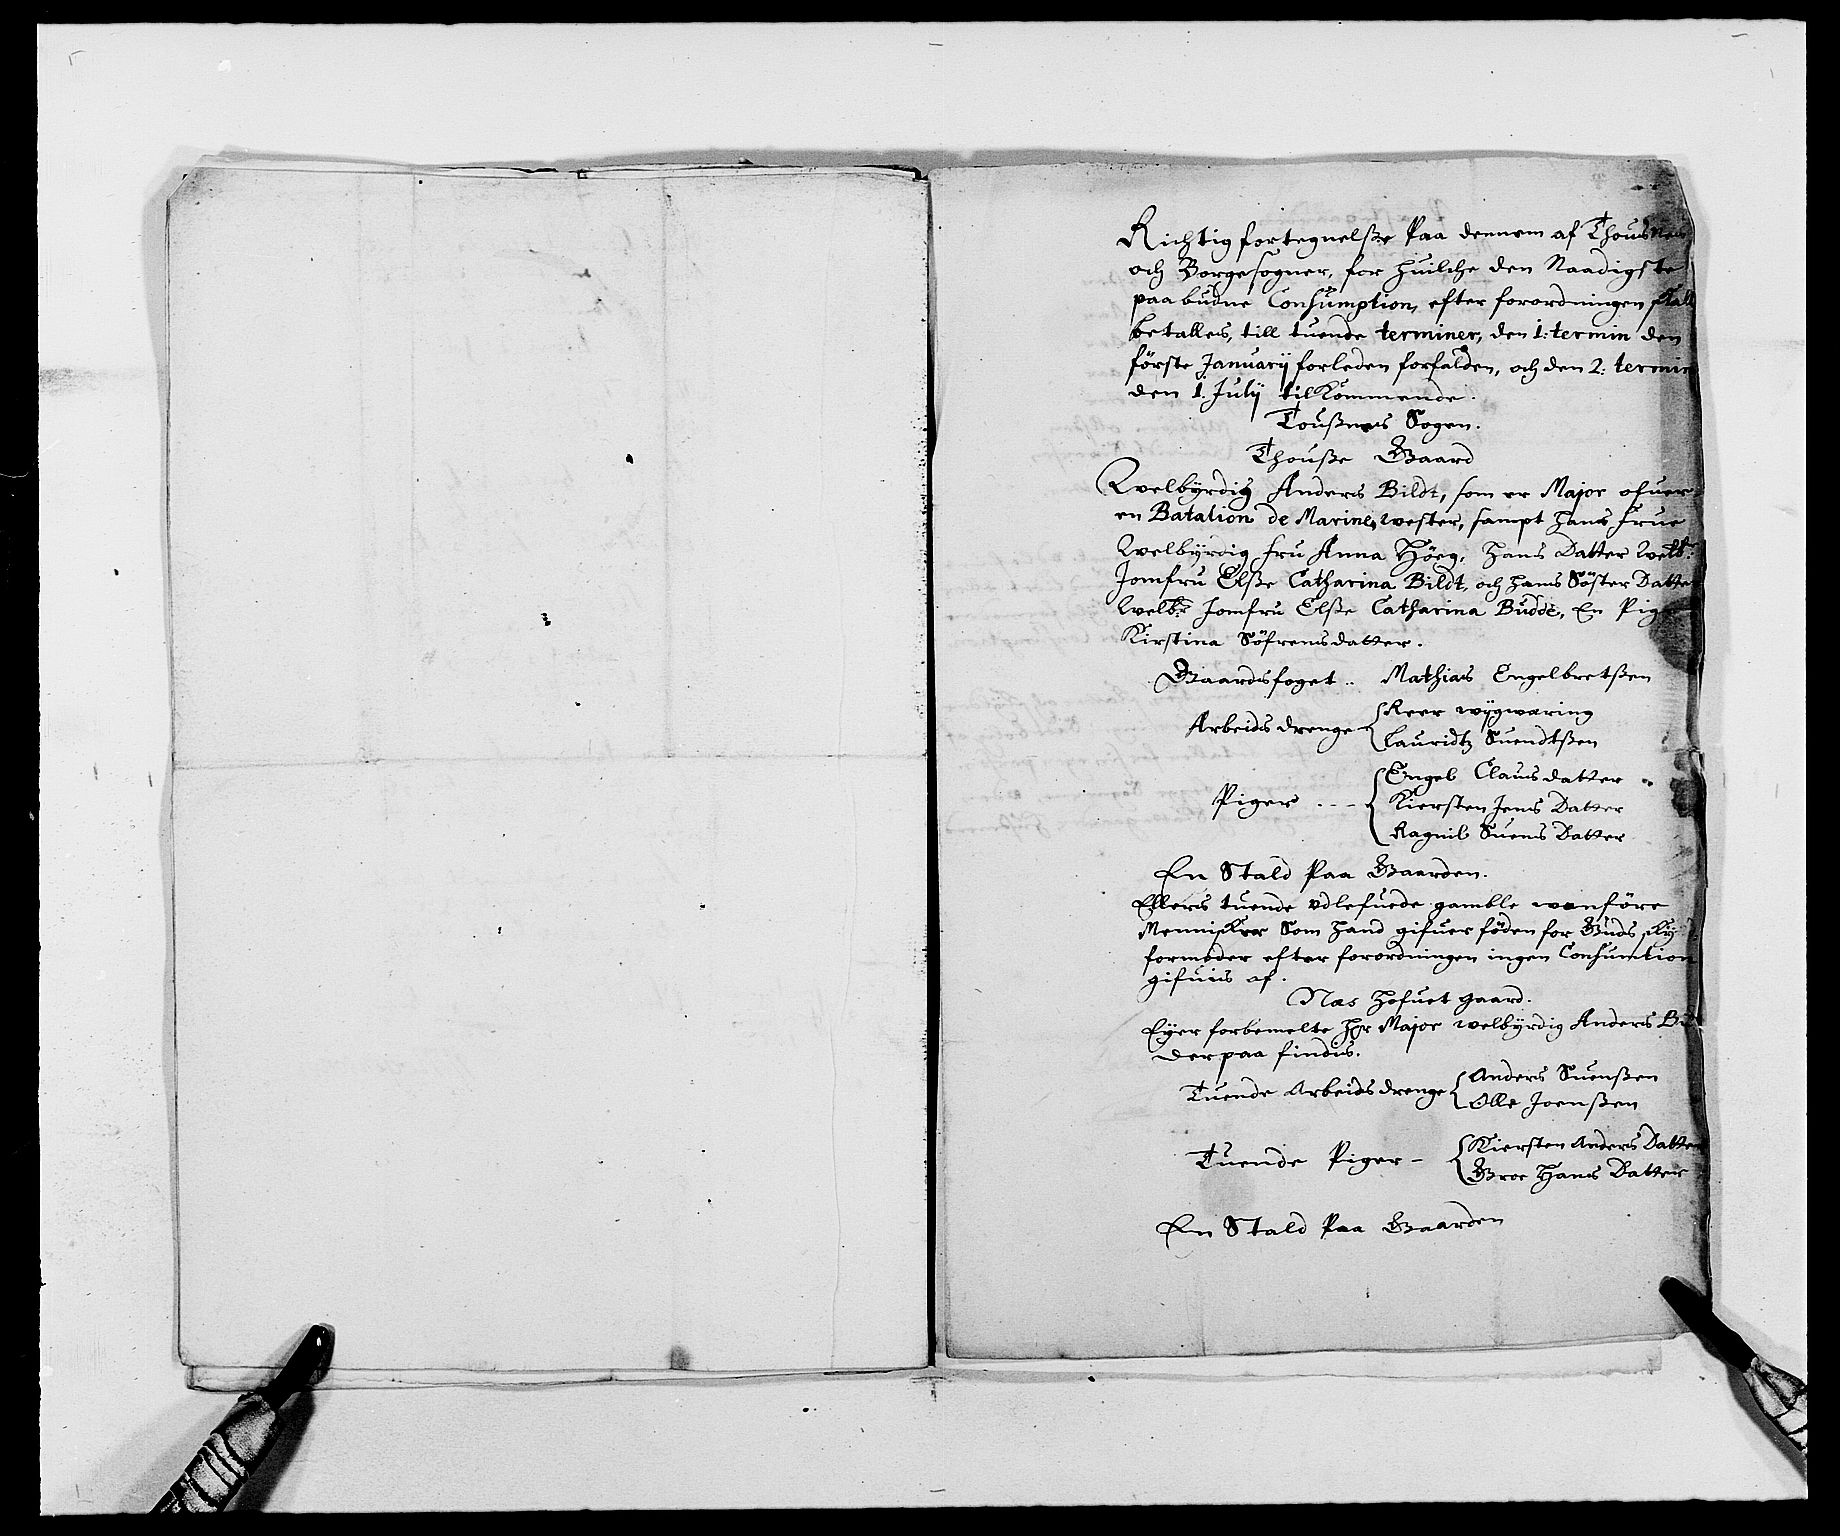 Richtig fortegnelsße Paa dennem af Thousnes
och Borge sogner, for huilche den Naadigste
paabudne Consumption, efter forordningen skall
betalles, till tuende terminer, den 1: termin den
förste January forleden forfalden, och den 2: termin
den 1. July tilkommende.
Tousßnes Sogen.
Thousße Gaard
Welbyrdig Anders Bildt, som er Major ofuer
en Batalion de Marine, wester, sampt hans frue
Welbyrdig fru Anna Höeg, hans Datter Welb:
Jomfru Elsße Catharina Bildt, och hans Söster Datter
Welb: Jomfru Elsße Catharina Budde, En Pige
Kirstina Söfrensdatter.
Gaardsfoget .. Mathias Engelbretsßen
Arbeids drenge Peer wygwaring
Lauridtz Suendtsßen
Engeb Clausdatter
Piger . - - Kiersten Jens Datter
Ragnil Suens Datter
En Stald Paa Gaarden.
Ellers tuende vdlefuede gamble wanföre
Mennisker Som hand gifuer föden for Guds sky
formoder efter forordningen ingen Consumtion
gifuis af.
Næs Hofuet gaard.
Eyer forbemelte Hr Major welbyrdig Anders Bil
derpaa findis.
Tuende Arbeids drenge Anders Suensßen
Olle Joensßen
Tuende Piger - Kiersten Anders Datter
Groe Hans Datter
En Stald Paa Gaarden